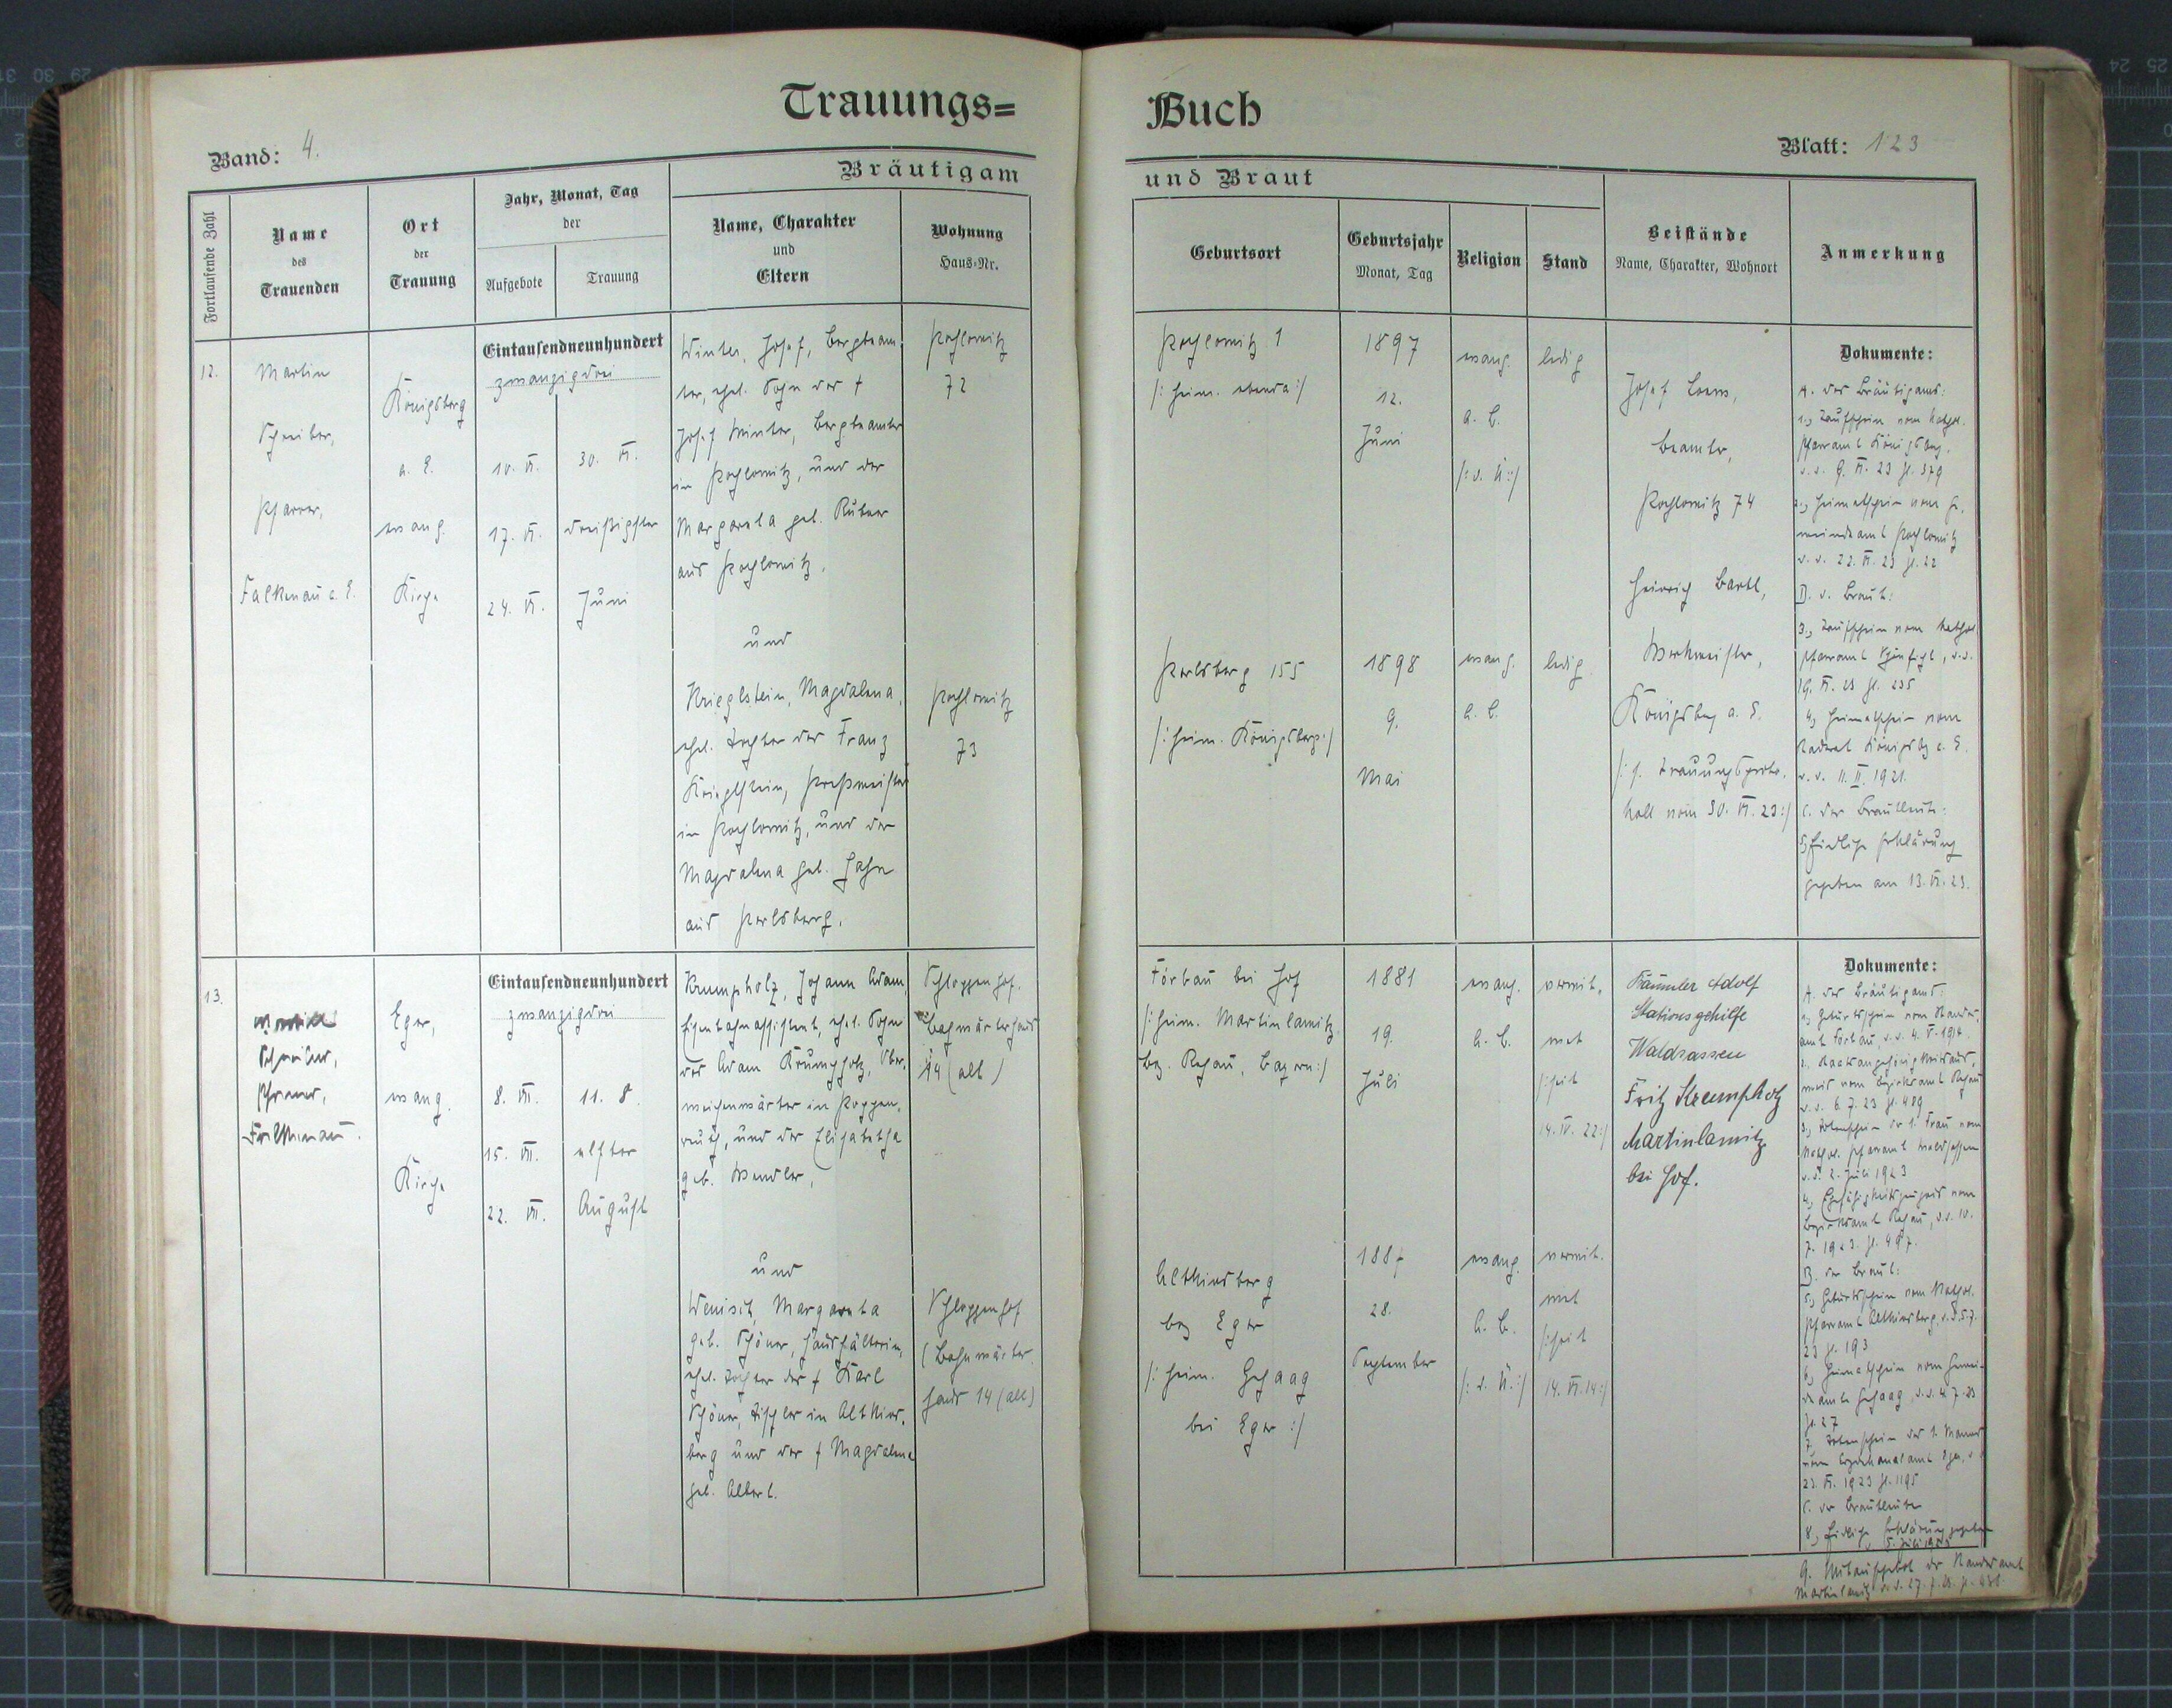 Trauungs=
Buch
Band: 4.
Blatt: 123
Bräutigam
und Braut
Fortlaufende Zahl
Name
des
Trauenden
Ort
der
Trauung
Jahr, Monat, Tag
der
Aufgebote
Trauung
Name, Charakter
und
Eltern
Wohnung
Haus-Nr.
Geburtsort
Geburtsjahr
Monat, Tag
Religion
Stand
Beistände
Name, Charakter, Wohnort
Anmerkung
12.
Martin
Schreiber,
Pfarrer,
Falkenau a. E.
Königsberg
a. E.
evang.
Kirche
Eintausendneunhundert
zwanzigdrei
10. VI.
17. VI.
24. VI.
30. VI.
dreißigster
Juni
Winter, Josef, Bergbeam-
ter, ehel. Sohn des †
Josef Winter, Bergbeamter
in Pochlowitz, und der
Margareta geb.
aus Pochlowitz.
und
Krieglstein, Magdalena,
ehel. Tochter des Franz
Krieglstein, Preßmeister
in Pochlowitz, und der
Magdalena geb. Hahn
aus Perlsberg.
Pochlowitz
72
Pochlowitz
73
Pochlowitz 1
/: heim. ebenda :/
1897
12.
Juni
evang.
A. B.
/: s. Ü :/
ledig
Perlsberg 155
/: heim. Königsberg :/
1898
9.
Mai
evang.
A. B.
ledig
Josef
Beamter,
Pochlowitz 74
Heinrich Bartl,
Werkmeister,
Königsberg a. E.
/: s. Trauungsproto-
koll vom 30. VI. 23 :/
Dokumente:
A. des Bräutigams:
1., Taufschein vom kathol.
Pfarramt Königsberg,
v. 9. VI. 23 Zl. 379
2., Heimatschein vom Ge-
meindeamt Pochlowitz
v. 22. VI. 23 Zl. 22
B. d. Braut:
3., Taufschein vom kathol.
Pfarramt
19. VI. 23 Zl. 235
4., Heimatschein vom
Stadtrat Königsbg a. E.
11. II. 1921.
C. der Brautleute:
5., Eidliche Erklärung
gegeben am 13. VI. 23.
13.
Martin
Schreiber,
Pfarrer,
Falkenau.
Eger,
evang.
Kirche
Eintausendneunhundert
zwanzigdrei
8. VII.
15. VII.
22. VII.
11. 8.
elfter
August
Krumpholz, Johann Adam,
Eisenbahnassistent, ehel. Sohn
des Adam Krumpholz, Ober-
weichenwärter in Poppen-
reuth, und der Elisabetha
geb. Wendler,
und
Wenisch, Margareta
geb. Schöner, Haushälterin,
ehel. Tochter des † Karl
Schöner, Tischler in Altkins-
berg und der † Magdalena
geb. Albert.
Schloppenhof.
Bahnwärterhaus
14 (alt)
Schloppenhof
(Bahnwärter-
haus 14 (alt)
Förbau bei Hof
/: heim. Martinlamitz
bez. Rehau, Bayern :/
1881
19.
Juli
evang.
A. B.
verwit-
wet
/: seit
14. IV. 22 :/
Altkinsberg
bez Eger
/: heim. Gehaag
bei Eger :/
1887
28.
September
evang.
A. B.
/: s. Ü. :/
verwit-
wet
/: seit
14. VI. 14 :/
Kämmler Adolf
Stationsgehilfe
Waldsassen
Fritz Krumpholz
Martinlamitz
bei Hof.
Dokumente:
A. des Bräutigams:
1., Geburtsschein vom Standes-
amt Förbau, v. 4. V. 1914.
2., Staatsangehörigkeitsaus-
weis vom Bezirksamt Rehau
6. 7. 23 Zl. 489
3., Totenschein der 1. Frau vom
kathol. Pfarramt Waldsassen
2. Juli 1923
4., Ehefähigkeitszeugnis vom
Bezirksamt Rehau, v. 10.
7. 1923. Zl. 497.
B. der Braut:
5., Geburtsschein vom kathol.
Pfarramt Altkinsberg, v. 5. 7.
23 Zl. 193
6., Heimatschein vom Gemein-
deamte Gehaag, v. 4. 7. 23
Zl. 27
7. Totenschein des 1. Mannes
vom
23. VI. 1923 Zl. 1195
C. der Brautleute
8., Eidliche Erklärung gegeben
5. Juli 1923
9. des Standesamt
Martinlamitz v. 27. 7. 23.